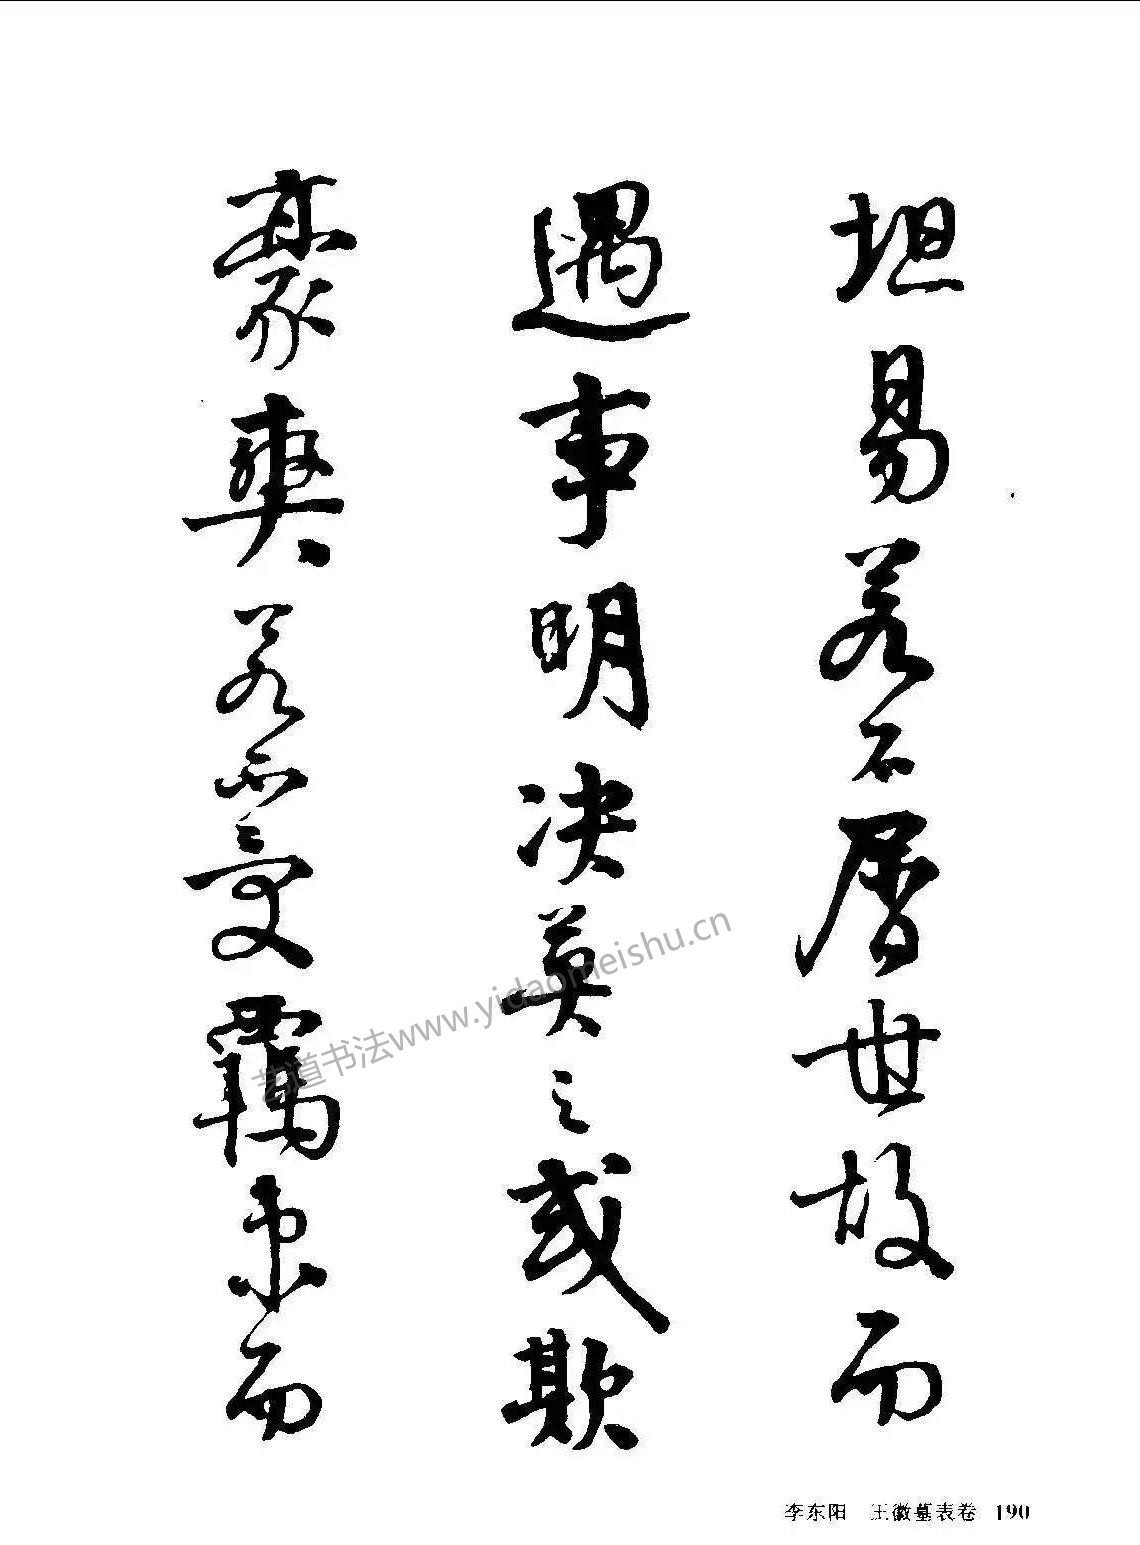 坦易若不屑世故而
遇事明决莫之或欺
豪爽若不受羁束而
艺道书法www.yidaomeishu.cn
李东阳 王徽墓表卷 190